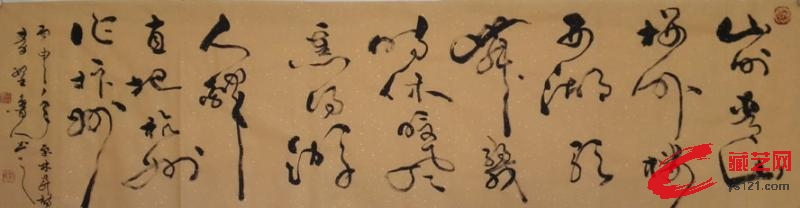 山外青山
楼外楼
西湖歌
舞幾
时休暖风
熏得游
人醉
直把杭州
作汴州
丙申
林升诗
藏艺网
ys121.com